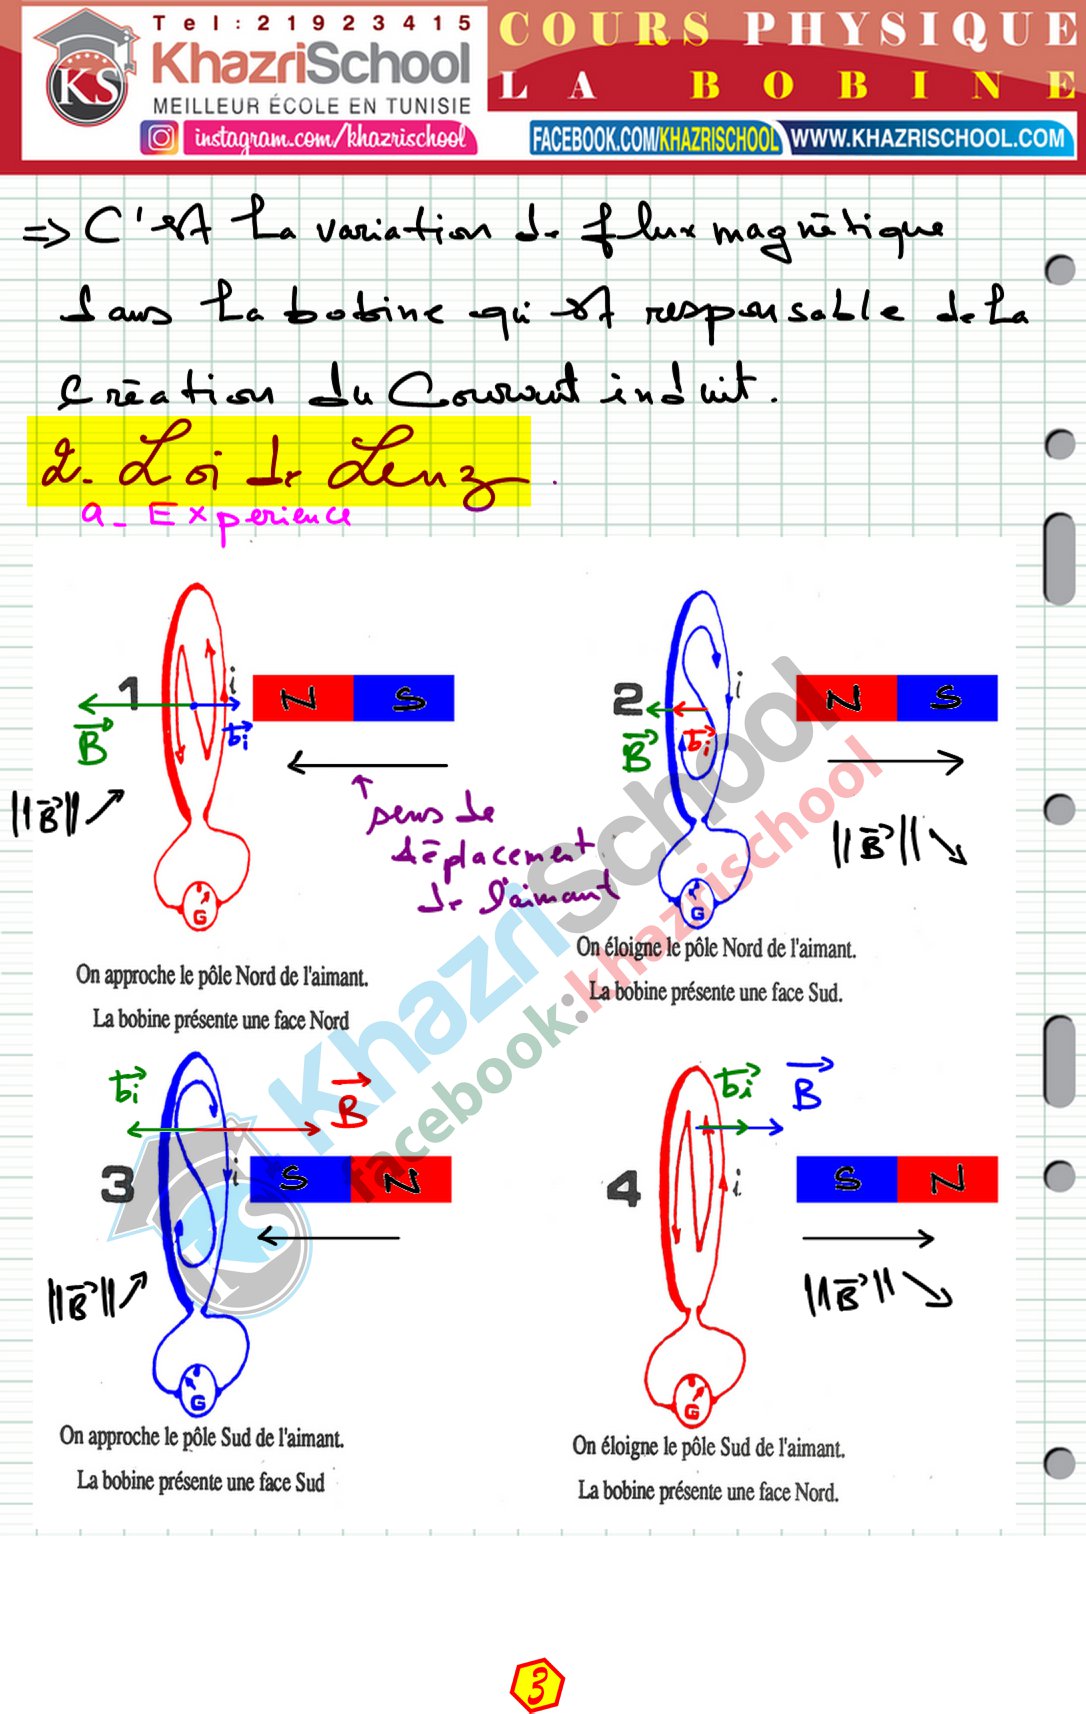 Tel: 21923415
KhazriSchool
MEILLEUR ÉCOLE EN TUNISIE
KS
instagram.com/khazrischool
COURS PHYSIQUE
LA BOBINE
FACEBOOK.COM/KHAZRISCHOOL
WWW.KHAZRISCHOOL.COM
=> C'est la variation de flux magnétique
dans la bobine qui est responsable de la
création du Courant induit.
2. Loi de Lenz.
a- Experience
1
i
N S
B⃗
b⃗i
||B⃗|| ↗
sens de
déplacement
de l'aimant
G
On approche le pôle Nord de l'aimant.
La bobine présente une face Nord
2
i
N S
B⃗
b⃗i
||B⃗|| ↘
G
On éloigne le pôle Nord de l'aimant.
La bobine présente une face Sud.
3
b⃗i
B⃗
i
S N
||B⃗|| ↗
G
On approche le pôle Sud de l'aimant.
La bobine présente une face Sud
4
b⃗i
B⃗
i
S N
||B⃗|| ↘
G
On éloigne le pôle Sud de l'aimant.
La bobine présente une face Nord.
KhazriSchool
facebook:khazrischool
KS
3